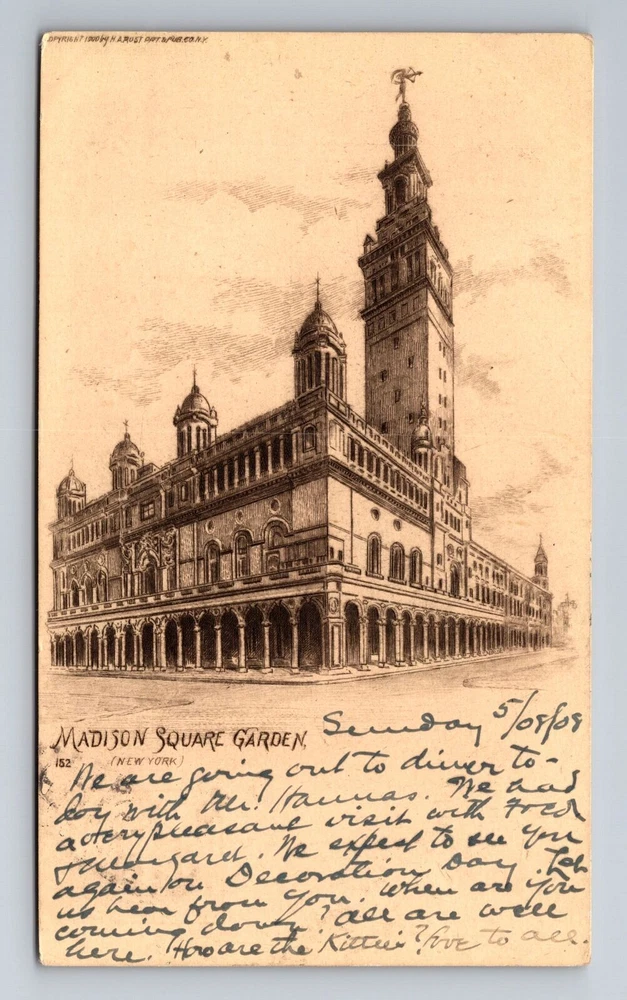 COPYRIGHT 1900 BY H.A. ROST PRT. & PUB. CO. N.Y.
MADISON SQUARE GARDEN,
152 (NEW YORK)
Sunday 5/08/08
We are going out to dinner to-
day with Mr. Hannas. We had
a very pleasant visit with Fred
& Margaret. We expect to see you
again on Decoration Day. Let
us hear from you. When are you
coming down? All are well
here. How are the Kitties? Love to all.